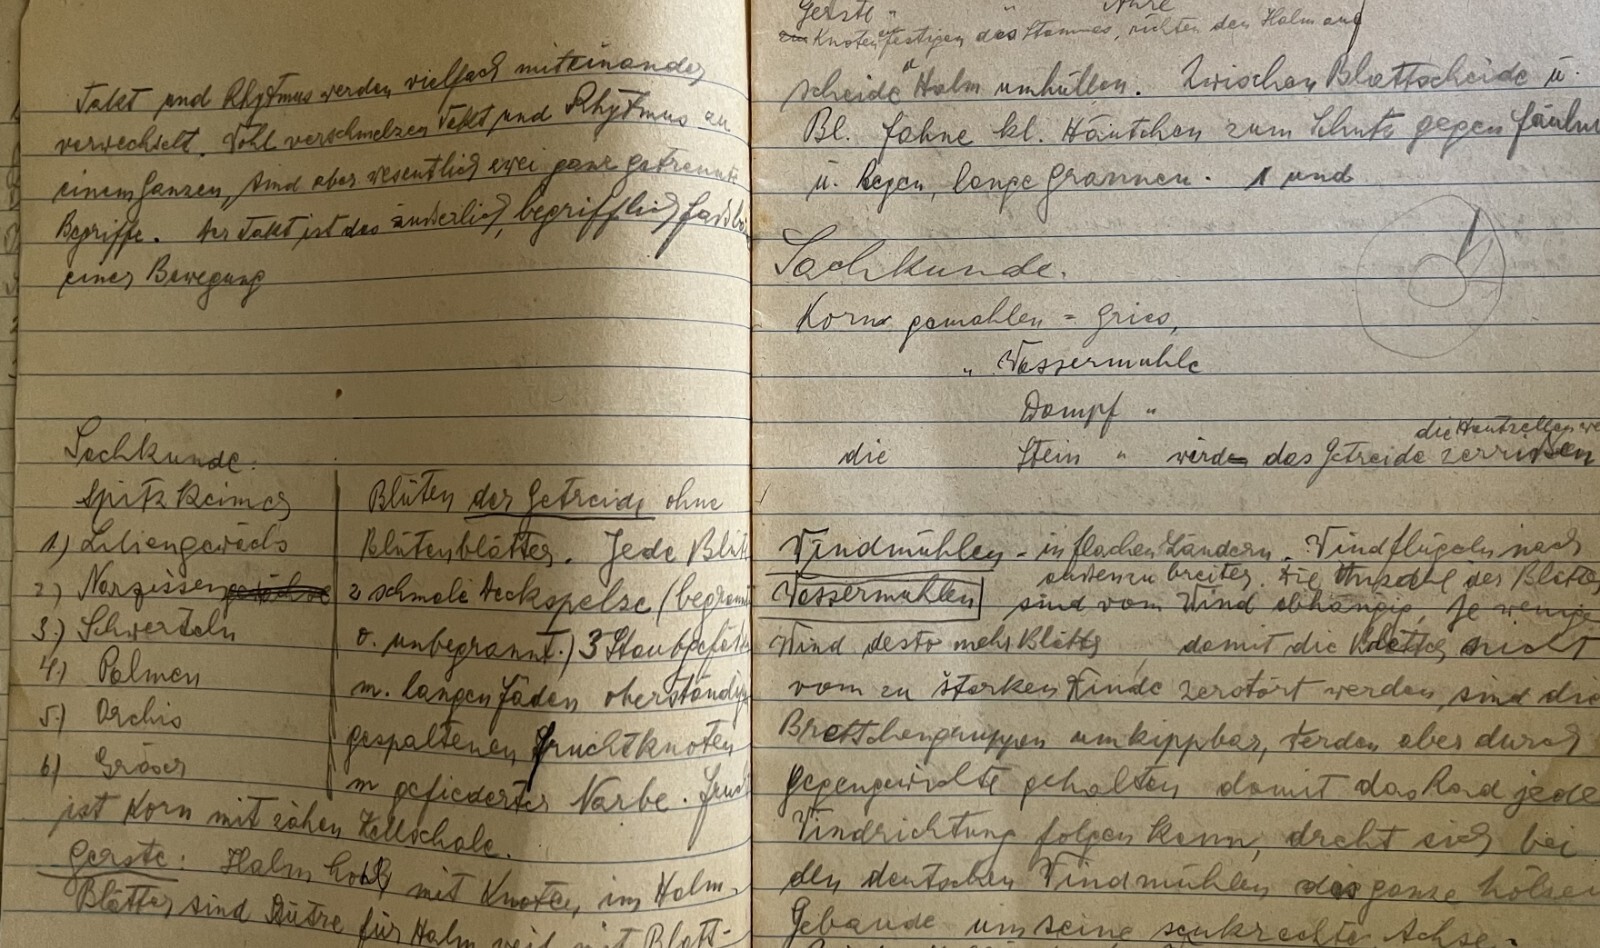 Takt und Rhytmus werden vielfach miteinander
verwechselt. Wohl verschmelzen Takt und Rhytmus zu
einem Ganzen, sind aber wesentlich zwei ganz getrennte
Begriffe. Der Takt ist das äußerlich, begrifflich
einer Bewegung
Sachkunde:
Spitzkeimer
1.) Liliengewächs
2.) Narzissen
3.) Schwerteln
4.) Palmen
5.) Orchis
6.) Gräser
Blüten der Getreide ohne
Blütenblätter. Jede Blüt
2 schmale Deckspelze (begrannt
o. unbegrannt.) 3 Staubgefäß
m. langen Fäden oberständig
gespaltenen Fruchtknoten
m gefiederter Narbe. Frucht
ist Korn mit zähen Zellschale.
Gerste: Halm hohl mit Knoten, im Halm
Blätter sind Stütze für Halm weil mit Blatt-
Gerste " " Ähre
Knoten festigen das Stammes, richten den Halm auf
scheide Halm umhüllen. Zwischen Blattscheide u.
Bl. fahne kl. Häutchen zum Schutz gegen Fäulnis
u. Regen, lange Grannen. 1 und
Sachkunde.
Korn gemahlen = Gries,
" Wassermühle
Dampf "
die Hautzellen we
die Stein " wird das Getreide zerrißen
Windmühlen - in flachen Ländern. Windflügeln nach
außen zu breiter. Die Anzahl der Blätter
Wassermühlen sind vom Wind abhängig, Je wenige
Wind desto mehr Blätter, damit die Blätter nicht
vom zu starken Winde zerstört werden, sind die
Brettchengruppen umkippbar, werden aber durch
gegengewichte gehalten damit das Rad jede
Windrichtung folgen kann, dreht sich bei
den deutschen Windmühlen das ganze hölzern
Gebäude um seine senkrechte Achse.